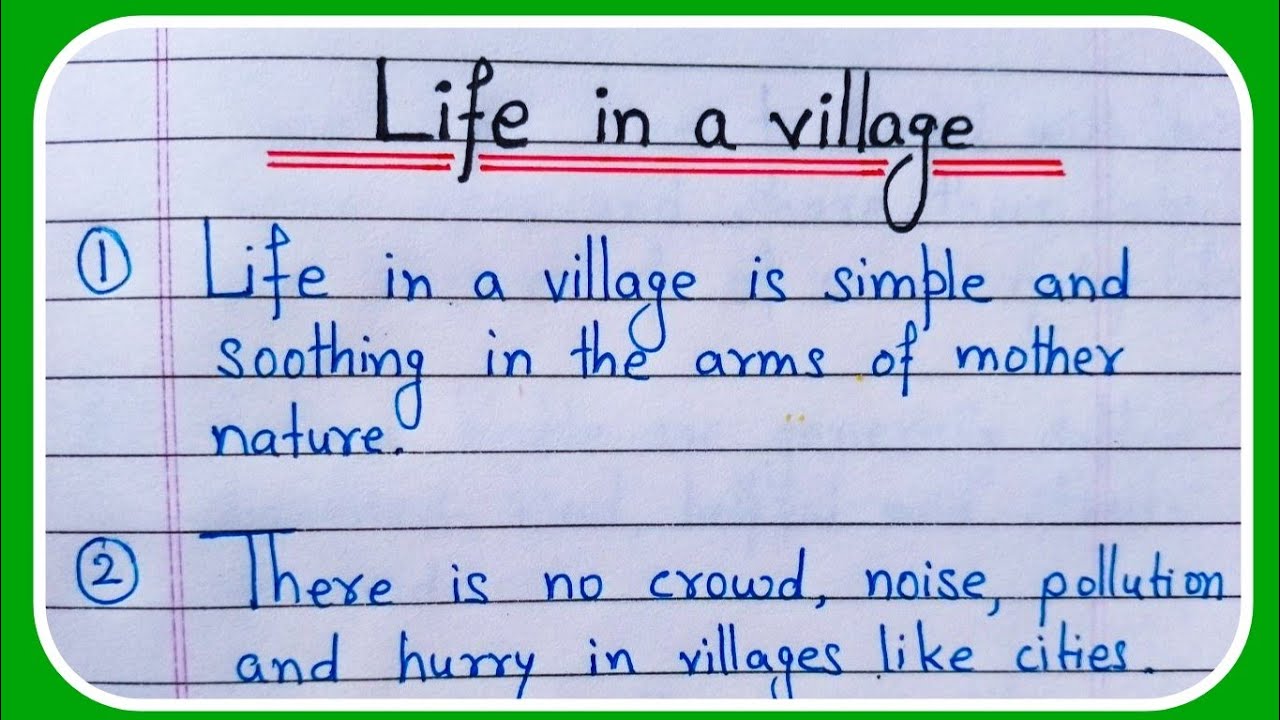 Life in a village
① Life in a village is simple and
soothing in the arms of mother
nature.
② There is no crowd, noise, pollution
and hurry in villages like cities.